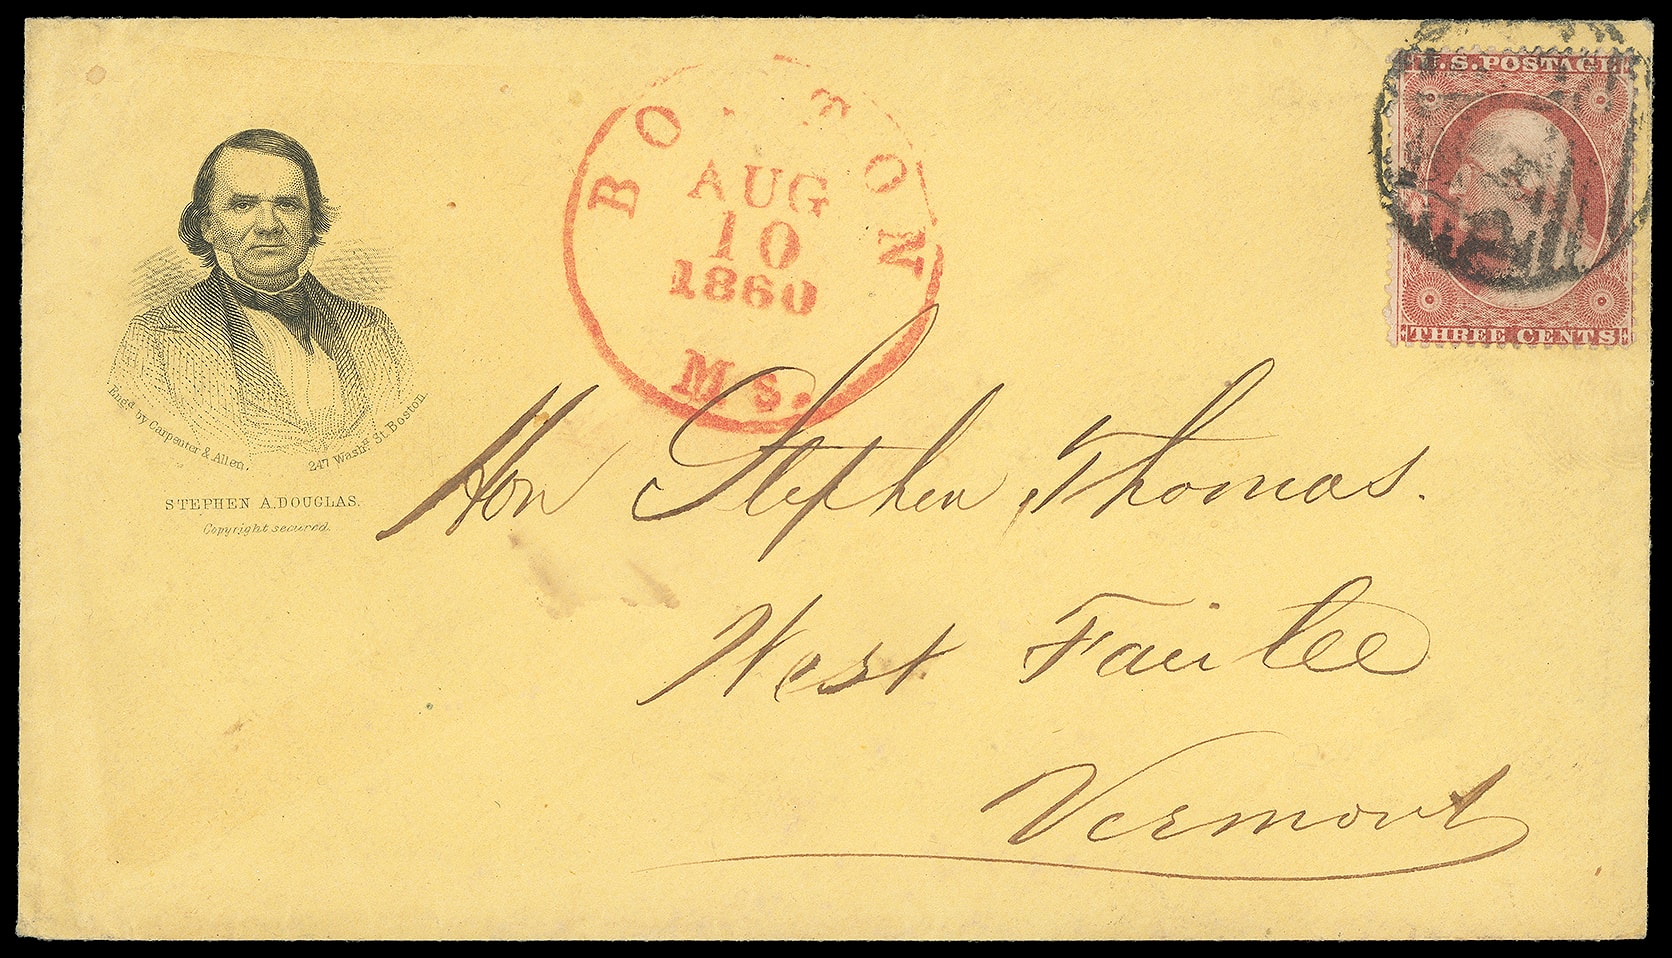 U.S. POSTAGE
THREE CENTS
BOSTON
AUG
10
1860
Ms.
Engd by Carpenter & Allen. 247 Washg. St. Boston.
STEPHEN A. DOUGLAS.
Copyright secured.
Hon Stephen Thomas.
West Fairlee
Vermont